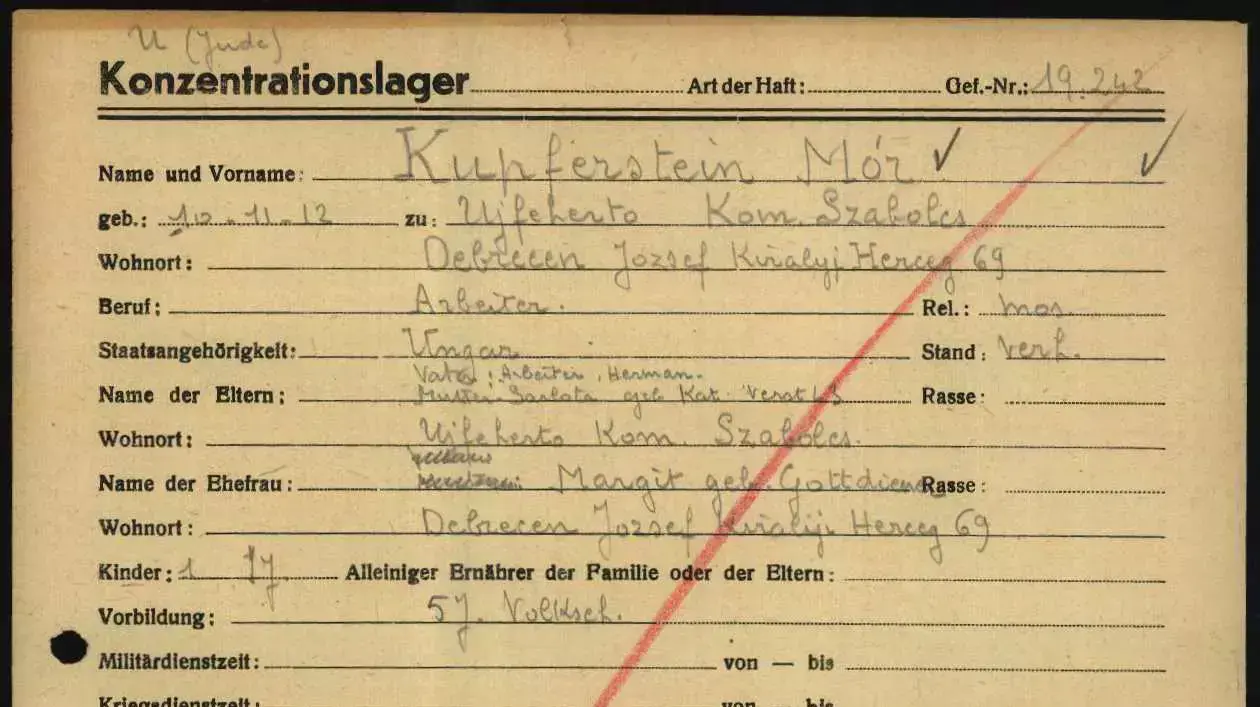 U (Jude)
Konzentrationslager Art der Haft: Gef.-Nr.: 19.242
Name und Vorname: Kupferstein Mór
geb.: 10-11-12 zu: Ujfeherto Kom. Szabolcs
Wohnort: Debrecen Jozsef Kiralyi Herceg 69
Beruf: Arbeiter. Rel.: mos.
Staatsangehörigkeit: Ungar Stand: Verh.
Vater: Arbeiter, Herman.
Name der Eltern: Mutter Sarlota geb Kat. Rasse:
Wohnort: Ujfeherto Kom. Szabolcs.
Name der Ehefrau: Margit geb. Rasse:
Wohnort: Debrecen Jozsef Kiralyi Herceg 69
Kinder: 1 Alleiniger Ernährer der Familie oder der Eltern:
Vorbildung: 5J. Volksch.
Militärdienstzeit: von — bis
Kriegsdienstzeit: von — bis